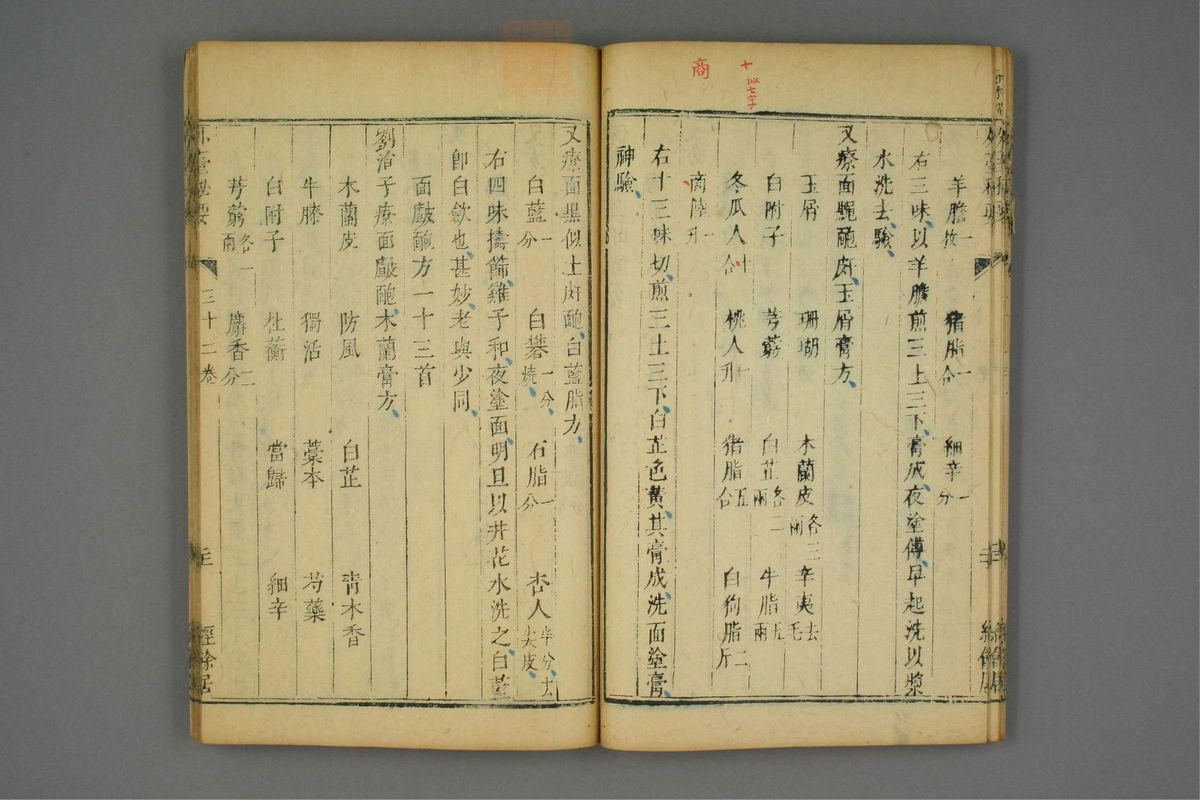 商
十
似七字
羊膽一枚 猪脂一合 細辛一分
右三味以羊膽煎三上三下膏成夜塗傅早起洗以漿
水洗去驗
又療面䵟皰皯玉屑膏方
玉屑 珊瑚 木蘭皮各三兩 辛夷去毛
白附子 芎藭 白芷各二兩 牛脂五兩
冬瓜人十合 桃人一升 猪脂五合 白狗脂二斤
商陸一升
右十三味切煎三土三下白芷色黃其膏成洗面塗膏
神驗
又療面黑似土皯皰白藍脂方
白藍一分 白礬一分燒 石脂一分 杏人半分去尖皮
右四味擣篩雞子和夜塗面明旦以井花水洗之白藍
即白斂也甚妙老與少同
面皻皰方一十三首
劉涓子療面皻皰木蘭膏方
木蘭皮 防風 白芷 青木香
牛膝 獨活 藁本 芍藥
白附子 杜蘅 當歸 細辛
芎藭各一兩 麝香二分
外臺秘要 三十二卷 經餘居